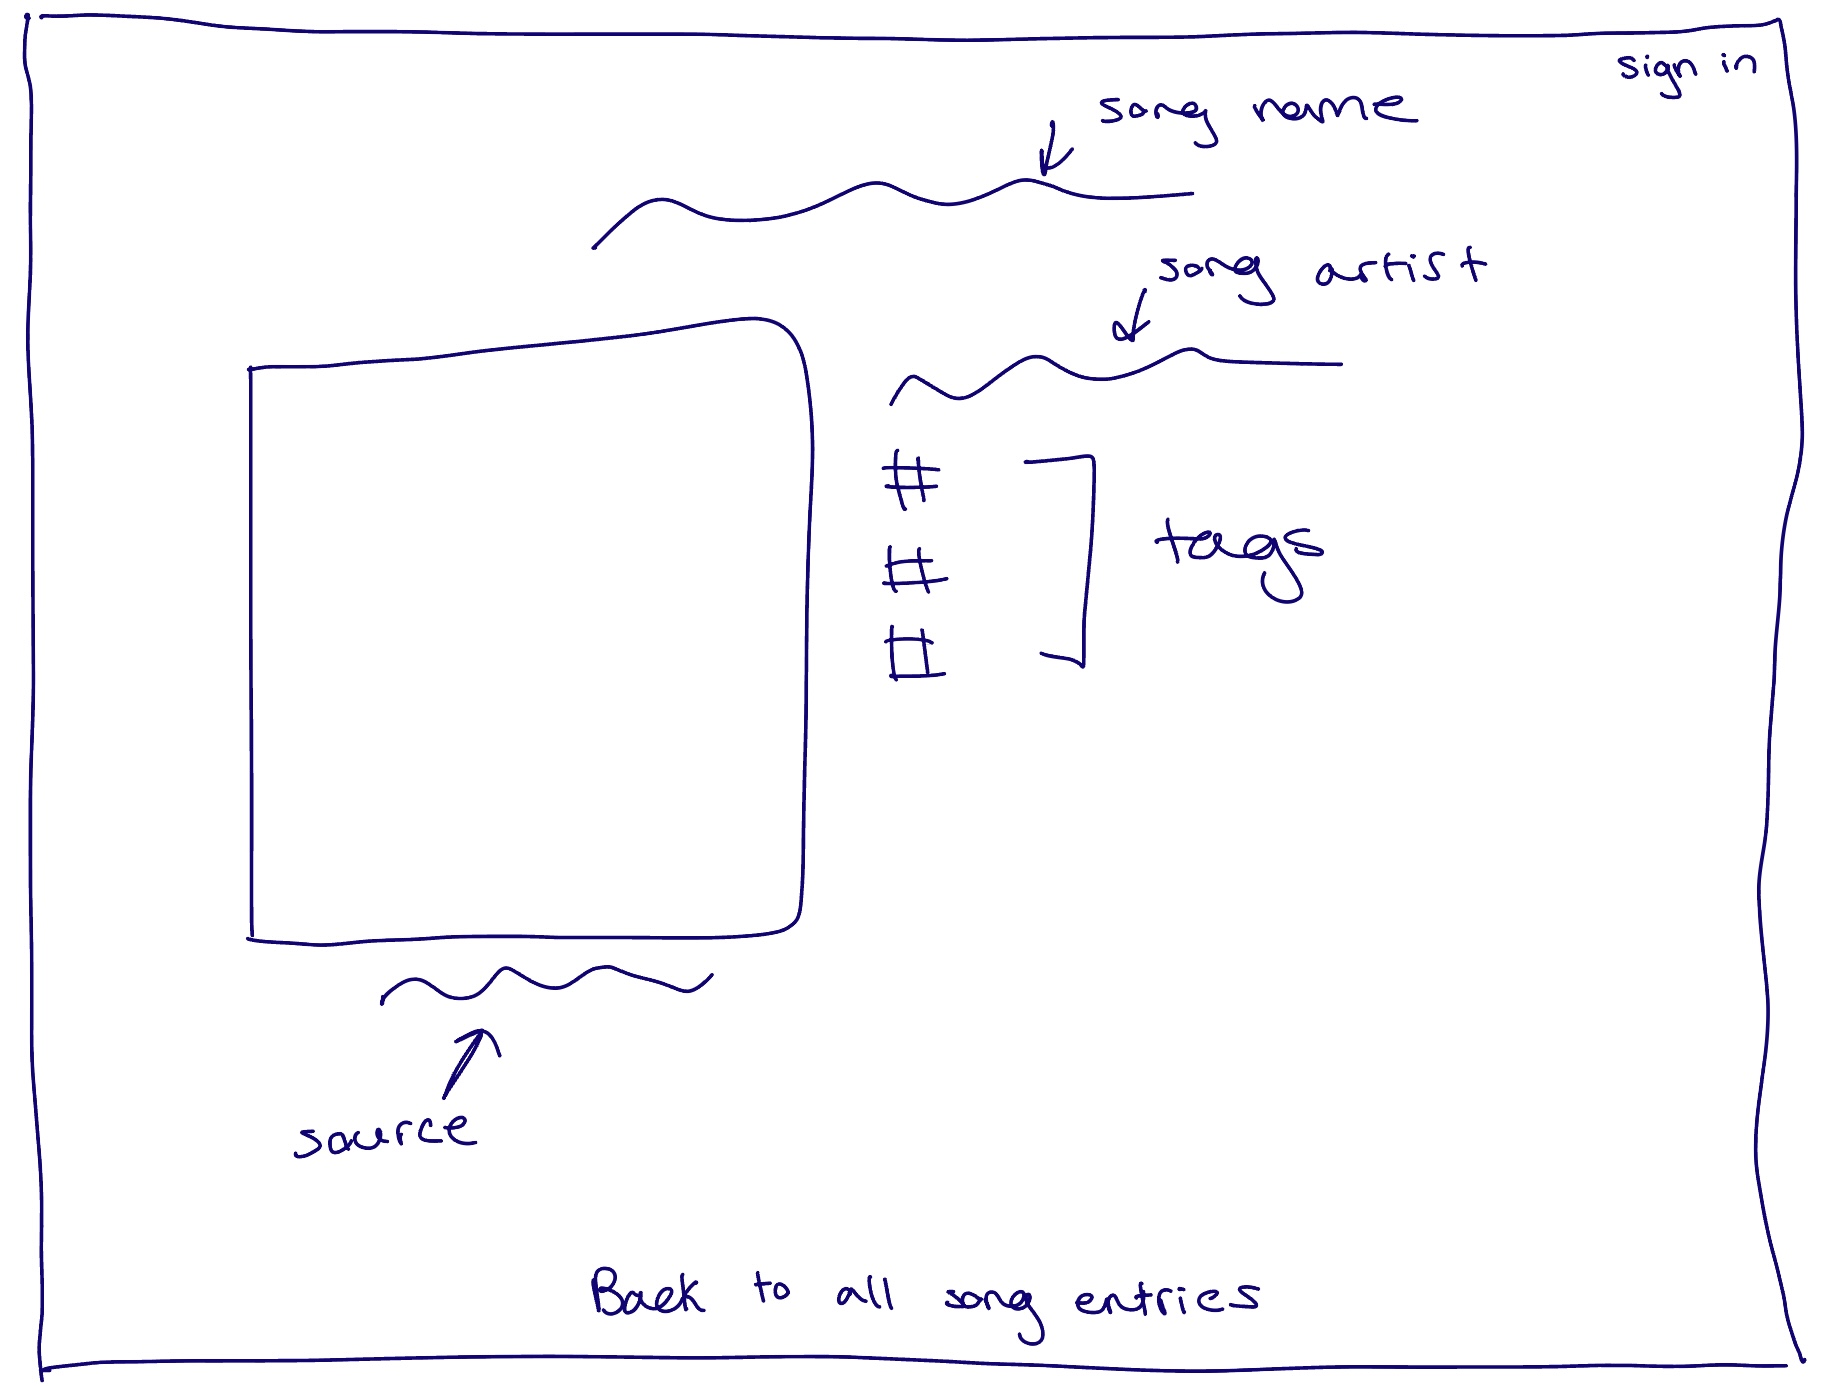 sign in
song name
song artist
#
#
#
tags
source
Back to all song entries